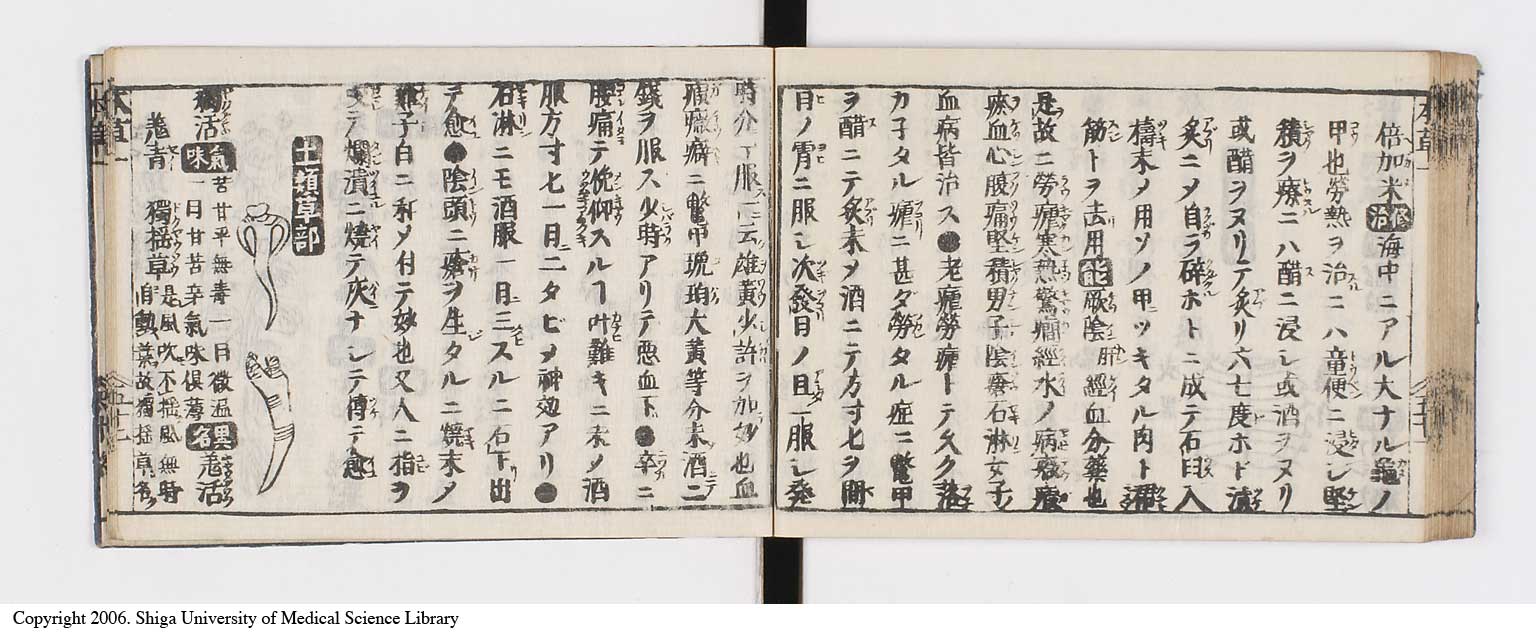 倍加米修治海中ニアル大ナル龜ノ
甲也勞熱ヲ治ニハ童便ニ浸シ堅
積ヲ療ニハ醋ニ浸シ或酒ヲヌリ
或醋ヲヌリテ炙リ六七度ホド
炙ニメ自ラ碎ホトニ成テ石臼入
擣末メ用ソノ甲ツキタル肉ト
筋トヲ去用能厥陰肝經血分藥也
是故ニ勞瘧寒熱驚癇經水ノ病
瘀血心腹痛堅積男子陰瘡石淋女子
血病皆治ス●老瘧勞瘧トテ久ク
カ子タル瘧ニ甚ダ勞タル症ニ鼈甲
ヲ醋ニテ炙末メ酒ニテ方寸七ヲ間
日ノ霄ニ服シ次發日ノ旦一服シ発
時分ニ一服一ニ云雄黄少許ヲ加妙也血
癥癖ニ鼈甲琥珀大黄等分末酒二
錢ヲ服ス少時アリテ悪血下●卒ニ
腰痛テ俛仰スルヿ叶難キニ末メ酒
服方寸七一日二タビメ神効アリ●
石淋ニモ酒服一日三スルニ石下出
テ愈●陰頭ニ瘡ヲ生タルニ焼末メ
雞子白ニ和メ付テ妙也又人ニ指ヲ
テ爛潰ニ燒テ灰ナシテ傅テ愈
土類草部
獨活氣味苦甘平無毒一曰微温
一曰甘苦辛氣味俱薄異名羗活
羗青 獨揺草是風吹不揺風無時
自動義故獨揺草名
本草一
本草一